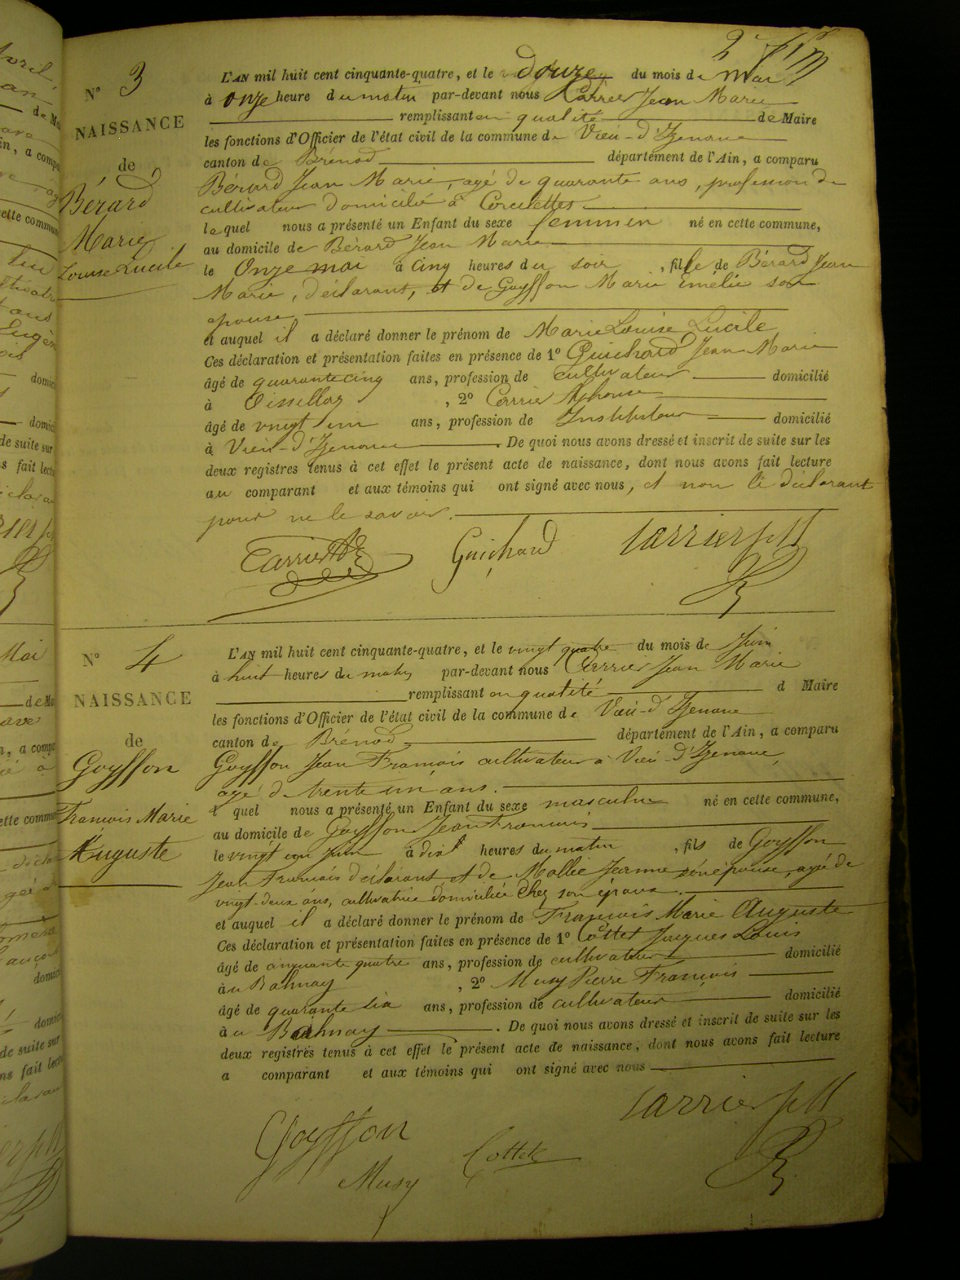 N° 3
NAISSANCE
de
Bérard
Marie
Louise Lucile
L'AN mil huit cent cinquante-quatre, et le douze du mois de mai
à onze heure du matin par-devant nous Carrier Jean Marie
remplissant en qualité de Maire
les fonctions d'Officier de l'état civil de la commune de Vieu-d'Izenave
canton de Brénod département de l'Ain, a comparu
Bérard Jean Marie, agé de quarante ans, profession de
cultivateur domicilié à Corcelettes
lequel nous a présenté un Enfant du sexe féminin né en cette commune,
au domicile de Bérard Jean Marie
le Onze mai à cinq heures du soir, fille de Bérard Jean
Marie, déclarant, et de Goyffon Marie Emélie son
epouse
et auquel il a déclaré donner le prénom de Marie Louise Lucile
Ces déclaration et présentation faites en présence de 1° Guichard Jean Marie
âgé de quarante cinq ans, profession de cultivateur domicilié
à , 2° Carrier
âgé de vingt un ans, profession de Instituteur domicilié
à Vieu-d'Izenave . De quoi nous avons dressé et inscrit de suite sur les
deux registres tenus à cet effet le présent acte de naissance, dont nous avons fait lecture
au comparant et aux témoins qui ont signé avec nous, et non le déclarant
pour ne le savoir.
Guichard
N° 4
NAISSANCE
de
Goyffon
François Marie
Auguste
L'AN mil huit cent cinquante-quatre, et le vingt quatre du mois de Juin
à huit heures du matin par-devant nous Carrier Jean Marie
remplissant en qualité d Maire
les fonctions d'Officier de l'état civil de la commune de Vieu-d'Izenave
canton de Brénod département de l'Ain, a comparu
Goyffon Jean François cultivateur à Vieu-d'Izenave,
agé de trente un ans.
l quel nous a présenté un Enfant du sexe masculin né en cette commune,
au domicile de Goyffon Jean François
le vingt un Juin à dix heures du matin, fils de Goyffon
Jean François déclarant et de Mollie Jeanne son épouse, agée de
vingt-deux ans, cultivatrice domiciliée chez son époux.
et auquel il a déclaré donner le prénom de François Marie Auguste
Ces déclaration et présentation faites en présence de 1° Cottet Jacques Louis
âgé de cinquante quatre ans, profession de cultivateur domicilié
à , 2° Musy Pierre François
âgé de quarante six ans, profession de cultivateur domicilié
à . De quoi nous avons dressé et inscrit de suite sur les
deux registres tenus à cet effet le présent acte de naissance, dont nous avons fait lecture
a comparant et aux témoins qui ont signé avec nous
Goyffon
Musy
Cottet